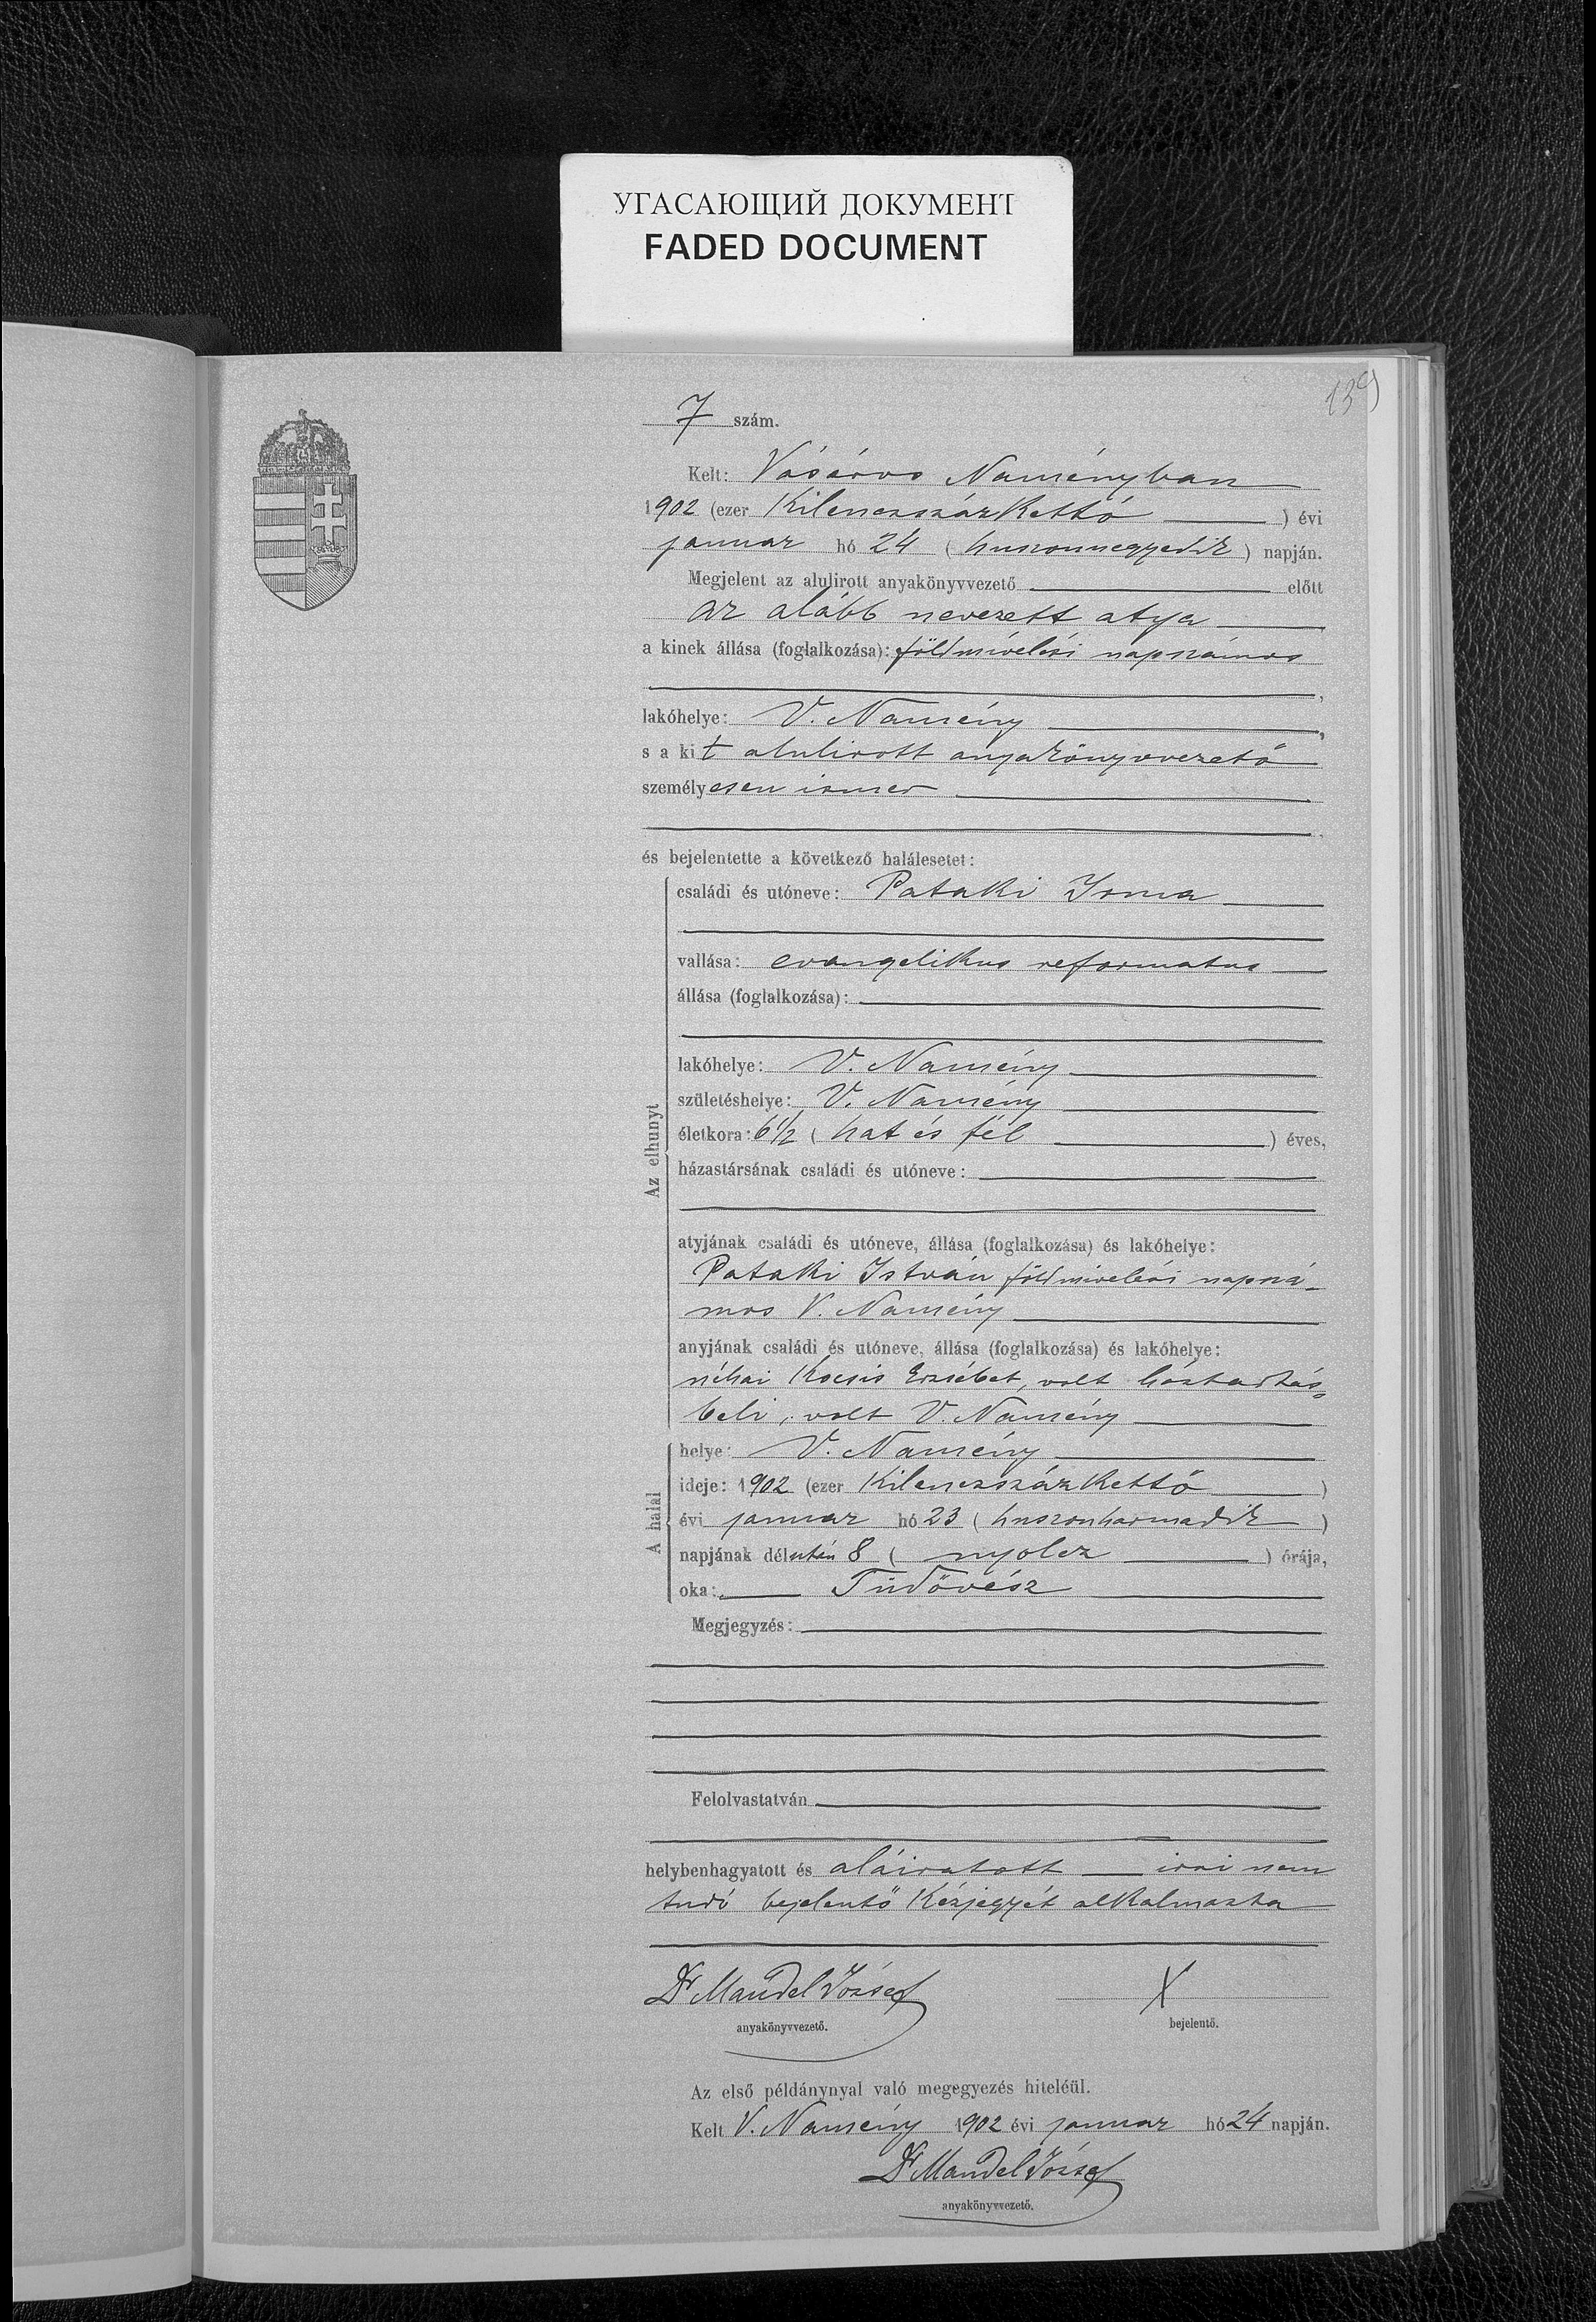 УГАСАЮЩИЙ ДОКУМЕНТ
FADED DOCUMENT
139
7 szám.
Kelt: Vásáros Naményban
1902 (ezer kilenczszázkettő) évi
januar hó 24 (huszonnegyedik) napján.
Megjelent az alulirott anyakönyvvezető előtt
az alább nevezett atya
a kinek állása (foglalkozása): földmivelési napszámos
,
lakóhelye: V. Namény,
s a kit alulirott anyakönyvvezető
személyesen ismer
és bejelentette a következő halálesetet:
Az elhunyt
családi és utóneve: Pataki Irma
vallása: evangelikus reformatus
állása (foglalkozása):
lakóhelye: V. Namény
születéshelye: V. Namény
életkora: 6 1/2 (hat és fél) éves,
házastársának családi és utóneve:
atyjának családi és utóneve, állása (foglalkozása) és lakóhelye:
Pataki István földmivelési napszá-
mos V. Namény
anyjának családi és utóneve, állása (foglalkozása) és lakóhelye:
néhai Kocsis Erzsébet, volt háztartás-
beli, volt V. Namény
A halál
helye: V. Namény
ideje: 1902 (ezer kilenczszázkettő)
évi januar hó 23 (huszonharmadik)
napjának délután 8 (nyolcz) órája,
oka: Tüdővész
Megjegyzés:
Felolvastatván
helybenhagyatott és aláiratott irni nem
tudó bejelentő kézjegyét alkalmazta
Dr Mandel József X
anyakönyvvezető. bejelentő.
Az első példánynyal való megegyezés hiteléül.
Kelt V. Namény 1902 évi januar hó 24 napján.
Dr Mandel József
anyakönyvvezető.